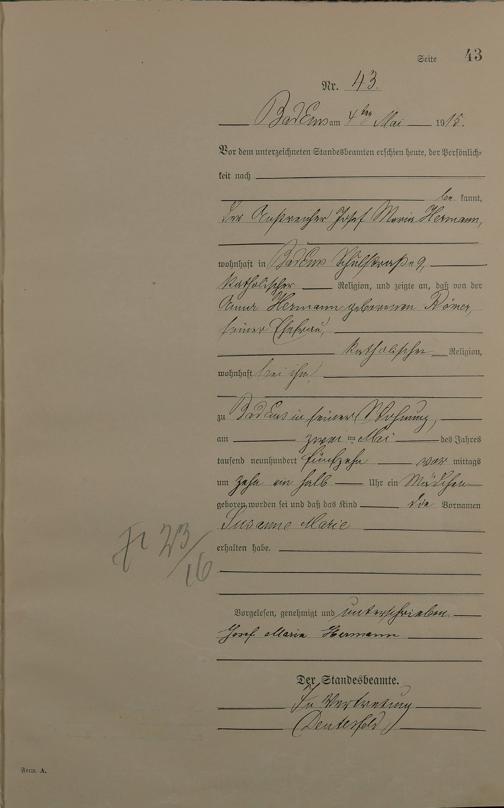 Seite 43
Nr. 43.
Bad Ems am 4ten Mai 1915.
Vor dem unterzeichneten Standesbeamten erschien heute, der Persönlich-
keit nach
be kannt,
der Anstreicher Josef Maria Hermann,
wohnhaft in Bad Ems Schulstraße 9,
katholischer Religion, und zeigte an, daß von der
Anna Hermann geborenen Römer,
seiner Ehefrau,
katholischer Religion,
wohnhaft bei ihm
zu Bad Ems in seiner Wohnung,
am zwei ten Mai des Jahres
tausend neunhundert fünfzehn vor mittags
um zehn ein halb Uhr ein Mädchen
geboren worden sei und daß das Kind die Vornamen
Susanne Marie
erhalten habe.
23/16
Vorgelesen, genehmigt und unterschrieben.
Josef Maria Hermann
Der Standesbeamte.
In Vertretung
Form. A.